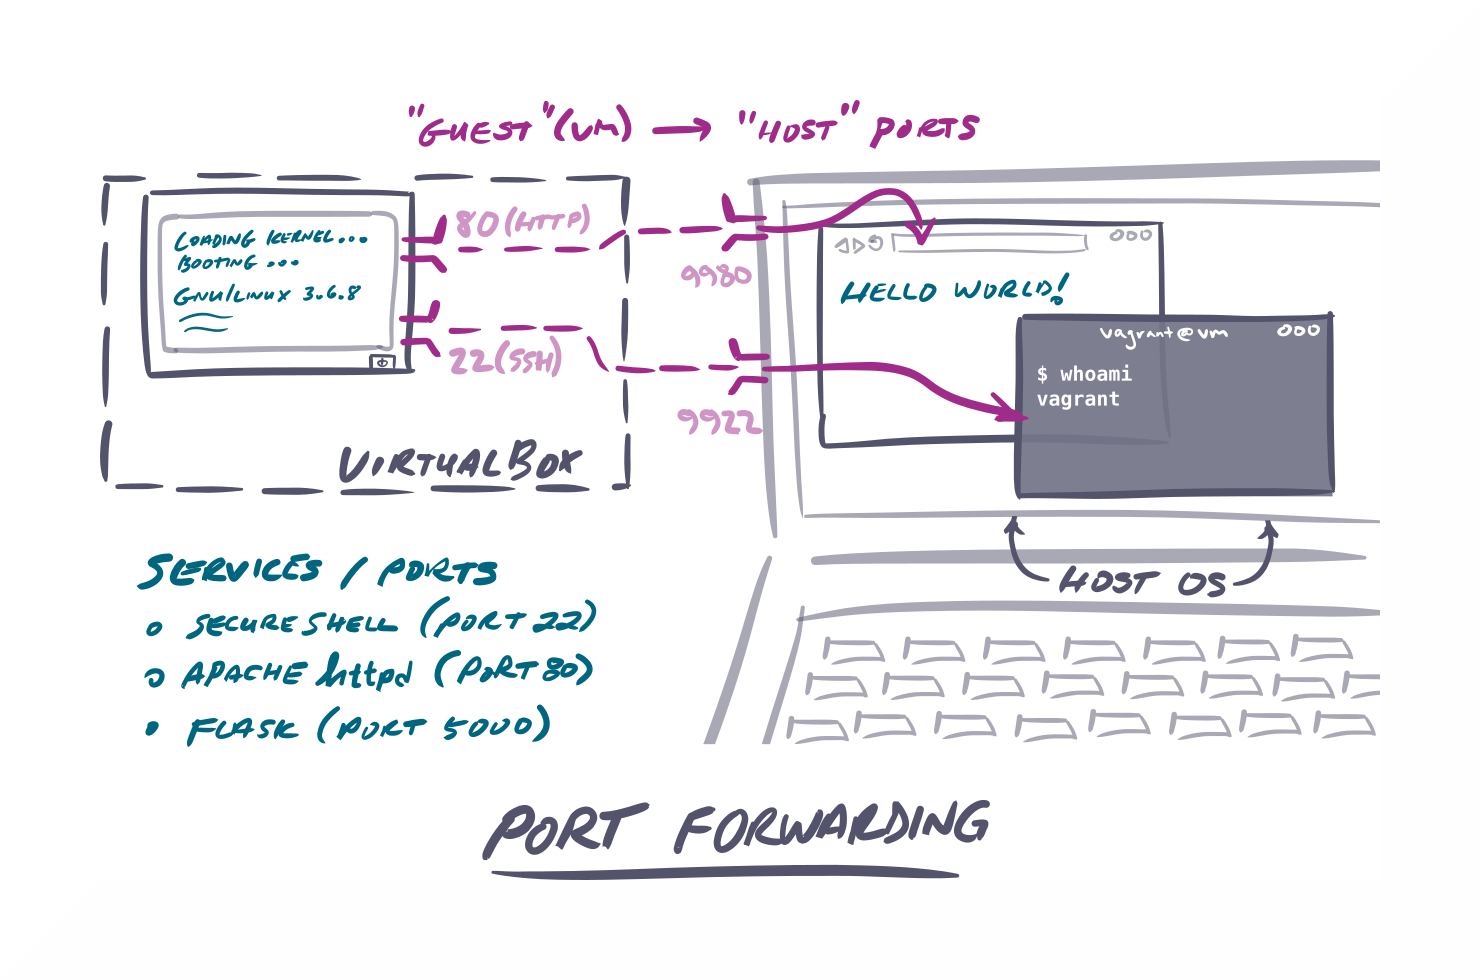 "GUEST" (VM) → "HOST" PORTS
LOADING KERNEL...
BOOTING ...
GNU/LINUX 3.6.8
80 (HTTP)
22 (SSH)
VIRTUALBOX
9980
9922
HELLO WORLD!
vagrant@vm
$ whoami
vagrant
HOST OS
SERVICES / PORTS
SECURE SHELL (PORT 22)
APACHE httpd (PORT 80)
FLASK (PORT 5000)
PORT FORWARDING